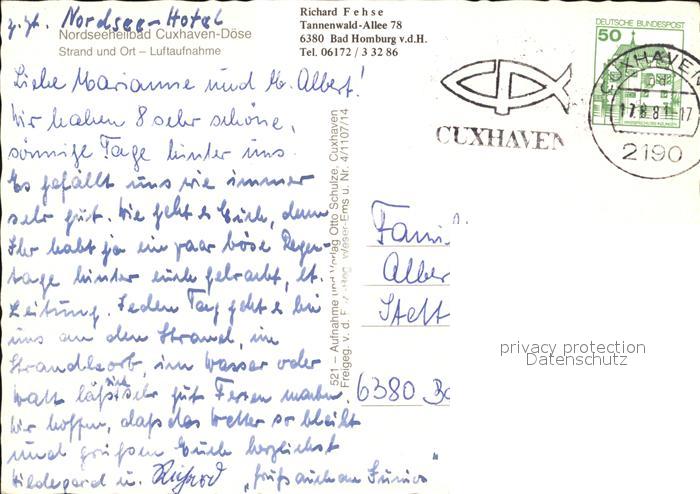 z. Zt. Nordsee-Hotel
Nordseeheilbad Cuxhaven-Döse
Strand und Ort – Luftaufnahme
Richard Fehse
Tannenwald-Allee 78
6380 Bad Homburg v.d.H.
Tel. 06172 / 3 32 86
DEUTSCHE BUNDESPOST
50
CUXHAVEN
17
2190
CUXHAVEN
Liebe Marianne und Albert!
Wir haben 8 sehr schöne,
sonnige Tage hinter uns.
Es gefällt uns wie immer
sehr gut. Wie geht es Euch, denn
Ihr habt ja ein paar böse Regen-
tage hinter euch gebracht, lt.
Zeitung. Jeden Tag geht es bei
uns an den Strand, im
Strandkorb, im Wasser oder
Watt läßt sich sehr gut Ferien machen.
Wir hoffen, daß das Wetter so bleibt
und grüßen Euch herzlichst
Hildegard u. Richard
521 – Aufnahme und Verlag Otto Schulze, Cuxhaven
Freigeg. v. d. Weser-Ems u. Nr. 4/1107/14
Fami
Alber
Stett
6380 Ba
privacy protection
Datenschutz